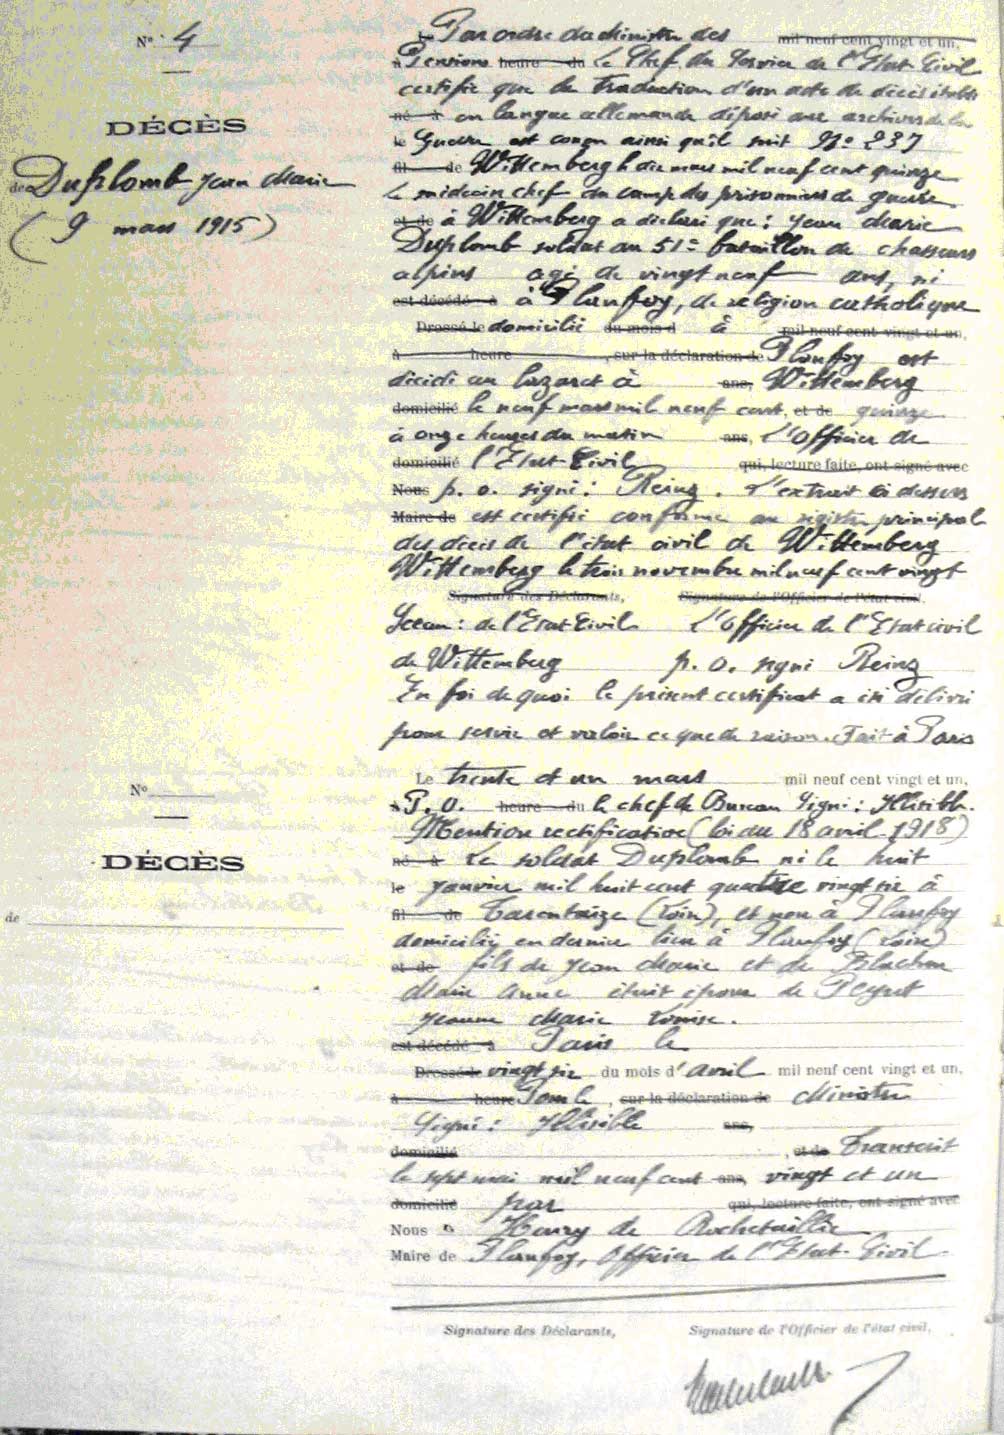 N° 4
DÉCÈS
de Duplomb Jean Marie
( 9 mars 1915 )
Par ordre du Ministre des mil neuf cent vingt et un,
à Pensions heure du Le Chef du Service de l'Etat-Civil
certifie que la traduction d'un acte de décès établi
né à en langue allemande déposé aux archives de la
le Guerre est conçu ainsi qu'il suit N° 237
fil de Wittemberg le dix mars mil neuf cent quinze
Le médecin chef du camp des prisonniers de guerre
et de à Wittemberg a déclaré que : Jean Marie
Duplomb soldat au 51e bataillon de chasseurs
alpins agé de vingt neuf ans, né
est décédé à à Planfoy, de religion catholique
Dressé le domicilié du mois d à mil neuf cent vingt et un,
à heure , sur la déclaration de Planfoy est
décédé au lazaret à ans, Wittemberg
domicilié le neuf mars mil neuf cent, et de quinze
à onze heures du matin ans, L'Officier de
domicilié l'Etat-Civil qui, lecture faite, ont signé avec
Nous p. o. signé : Reinz. L'extrait ci dessus
Maire de est certifié conforme au registre principal
des décès de l'état civil de Wittemberg
Wittemberg le trois novembre mil neuf cent vingt
Signature des Déclarants, Signature de l'Officier de l'état civil,
Sceau : de l'Etat-Civil L'Officier de l'Etat civil
de Wittemberg p. o. signé Reinz
En foi de quoi le présent certificat a été délivré
pour servir et valoir ce que de raison. Fait à Paris
N°
DÉCÈS
de
Le trente et un mars mil neuf cent vingt et un,
à P. O. heure du le chef de Bureau Signé : Illisible.
Mention rectificative (loi du 18 avril 1918)
né à Le soldat Duplomb né le huit
le janvier mil huit cent quatre vingt six à
fil de Tarentaize (Loire), et non à Planfoy
domicilié en dernier lieu à Planfoy (Loire)
et de fils de Jean Marie et de Blachon
Marie Anne était époux de Peyret
Jeanne Marie Louise.
est décédé à Paris le
Dressé le vingt six du mois d'avril mil neuf cent vingt et un,
à heure Pour le , sur la déclaration de Ministre
Signé : Illisible ans,
domicilié , et de Transcrit
le sept mai mil neuf cent ans, vingt et un
domicilié par qui, lecture faite, ont signé avec
Nous Henry de Rochetaillée
Maire de Planfoy, Officier de l'Etat-Civil
Signature des Déclarants, Signature de l'Officier de l'état civil,